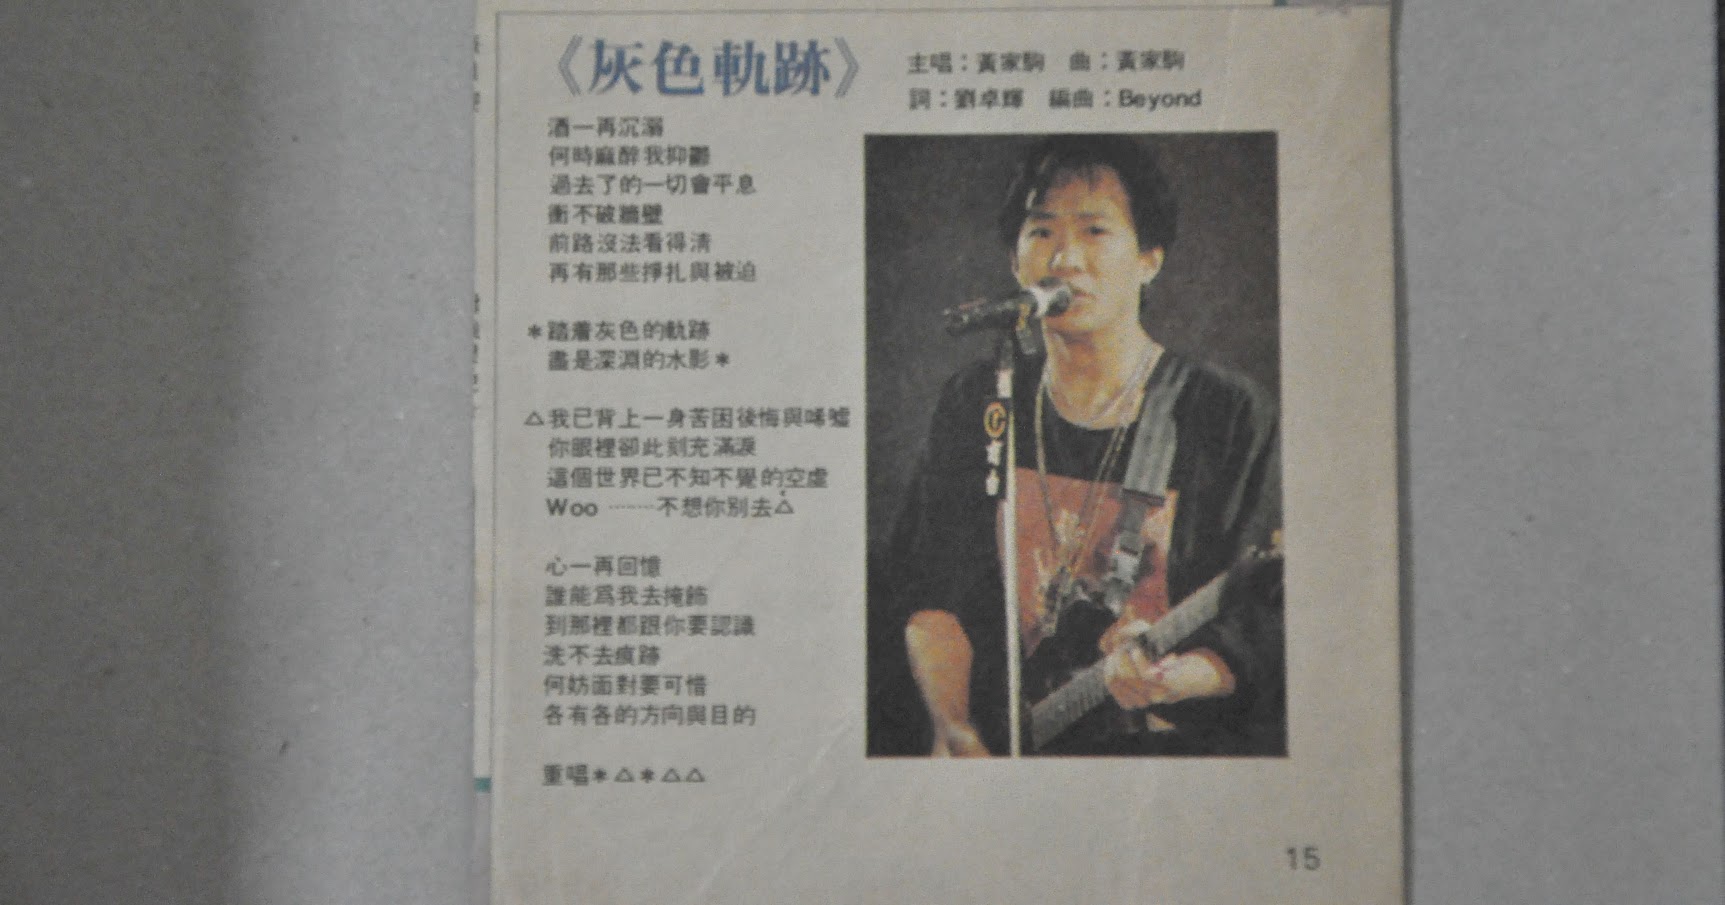 《灰色軌跡》
主唱：黃家駒　曲：黃家駒
詞：劉卓輝　編曲：Beyond
酒一再沉溺
何時麻醉我抑鬱
過去了的一切會平息
衝不破牆壁
前路沒法看得清
再有那些掙扎與被迫
＊踏着灰色的軌跡
盡是深淵的水影＊
△我已背上一身苦困後悔與唏噓
你眼裡卻此刻充滿淚
這個世界已不知不覺的空虛
Woo ……不想你別去△
心一再回憶
誰能爲我去掩飾
到那裡都跟你要認識
洗不去痕跡
何妨面對要可惜
各有各的方向與目的
重唱＊△＊△△
15